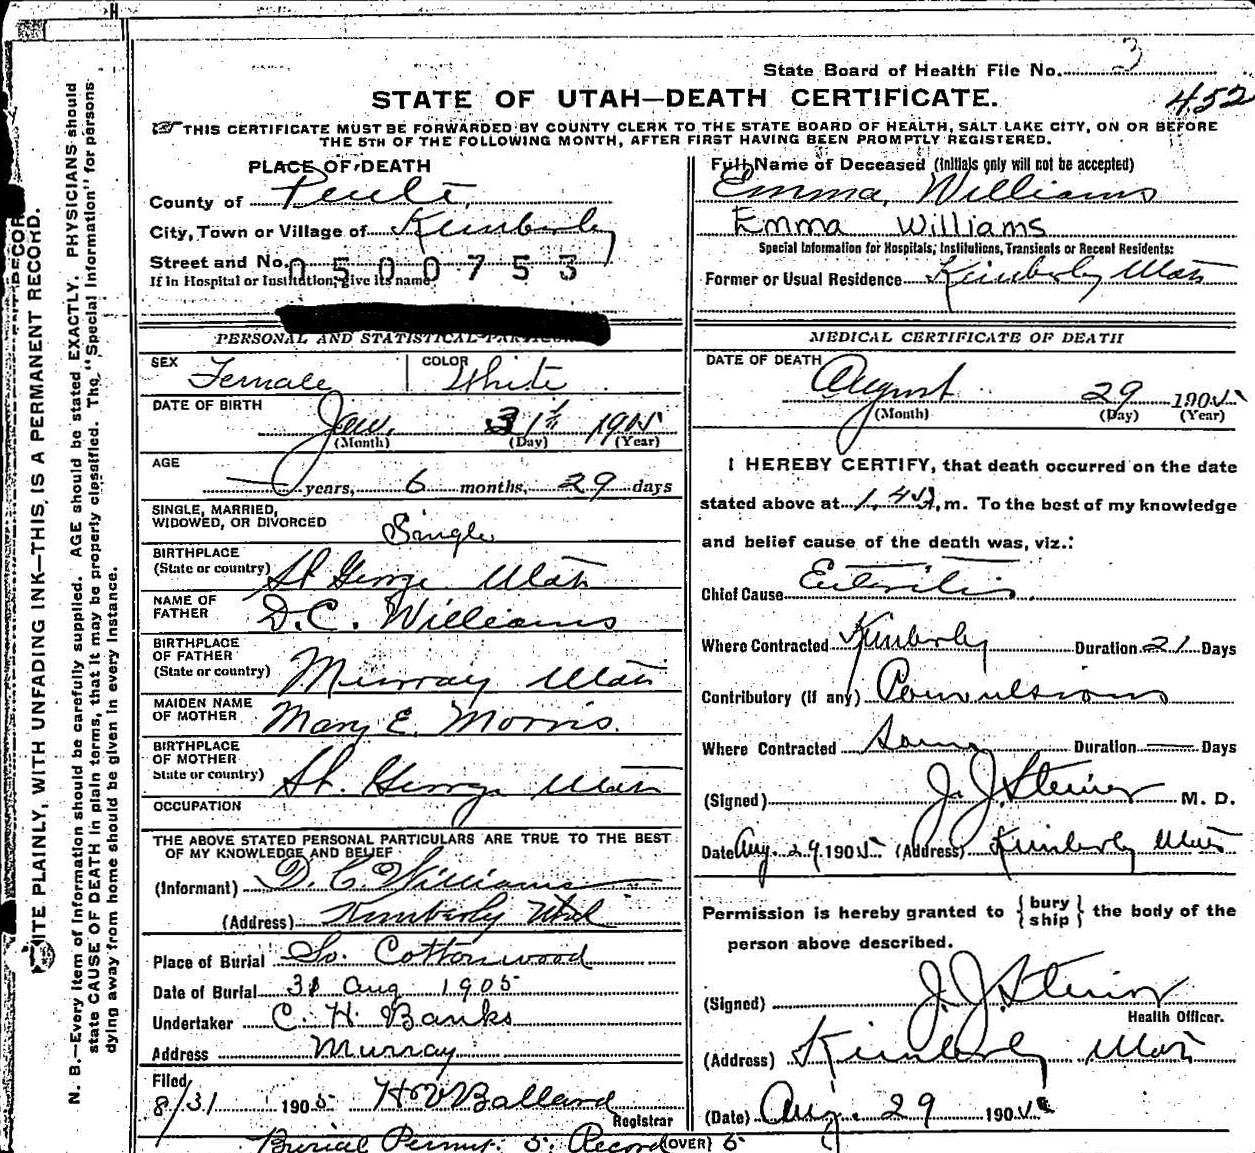 State Board of Health File No. 3
452
STATE OF UTAH—DEATH CERTIFICATE.
THIS CERTIFICATE MUST BE FORWARDED BY COUNTY CLERK TO THE STATE BOARD OF HEALTH, SALT LAKE CITY, ON OR BEFORE
THE 5TH OF THE FOLLOWING MONTH, AFTER FIRST HAVING BEEN PROMPTLY REGISTERED.
PLACE OF DEATH
County of Peute
City, Town or Village of Kimberly
Street and No.
0500753
If in Hospital or Institution, give its name
PERSONAL AND STATISTICAL
SEX Female COLOR White
DATE OF BIRTH Jan. 31st 1905
(Month) (Day) (Year)
AGE
— years, 6 months, 29 days
SINGLE, MARRIED,
WIDOWED, OR DIVORCED Single
BIRTHPLACE
(State or country) St George Utah
NAME OF
FATHER D. C. Williams
BIRTHPLACE
OF FATHER
(State or country) Murray Utah
MAIDEN NAME
OF MOTHER Mary E. Morris.
BIRTHPLACE
OF MOTHER
State or country) St. George Utah
OCCUPATION
THE ABOVE STATED PERSONAL PARTICULARS ARE TRUE TO THE BEST
OF MY KNOWLEDGE AND BELIEF
(Informant) D. C. Williams
(Address) Kimberly Utah
Place of Burial So. Cottonwood
Date of Burial 31 Aug 1905
Undertaker C. H. Banks
Address Murray
Filed
8/31 1905 H V Ballard
Registrar
Burial Permit. 5. Record (OVER) 6
Full Name of Deceased (Initials only will not be accepted)
Emma, Williams
Emma Williams
Special Information for Hospitals, Institutions, Transients or Recent Residents:
Former or Usual Residence Kimberly Utah
MEDICAL CERTIFICATE OF DEATH
DATE OF DEATH August 29 1905
(Month) (Day) (Year)
I HEREBY CERTIFY, that death occurred on the date
stated above at m. To the best of my knowledge
and belief cause of the death was, viz.:
Chief Cause
Where Contracted Kimberly Duration 21 Days
Contributory (if any) Convulsions
Where Contracted Same Duration — Days
(Signed) J. J. Steiner M. D.
Date Aug. 29. 1905. (Address) Kimberly Utah
Permission is hereby granted to {bury
ship} the body of the
person above described.
(Signed) J. J. Steiner
Health Officer.
(Address) Kimberly Utah
(Date) Aug. 29 1905
WRITE PLAINLY, WITH UNFADING INK—THIS, IS A PERMANENT RECORD.
N. B.—Every item of information should be carefully supplied. AGE should be stated EXACTLY. PHYSICIANS should
state CAUSE OF DEATH in plain terms, that it may be properly classified. The "Special Information" for persons
dying away from home should be given in every instance.